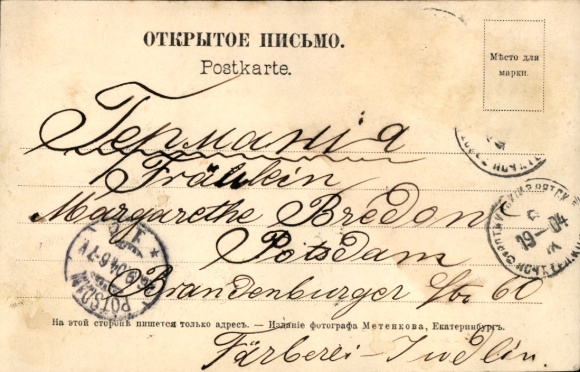 ОТКРЫТОЕ ПИСЬМО.
Postkarte.
Мѣсто для
марки.
Германія
Fräulein
Margarethe Bredon
Potsdam
Brandenburger Str 60
POTSDAM
На этой сторонѣ пишется только адресъ. — Изданіе фотографа Метенкова, Екатеринбургъ.
Färberei-